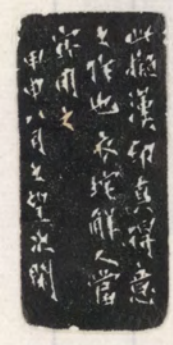 此擬漢印真得意
之作也衣雲解人當
家用之
甲申八月之望次閑